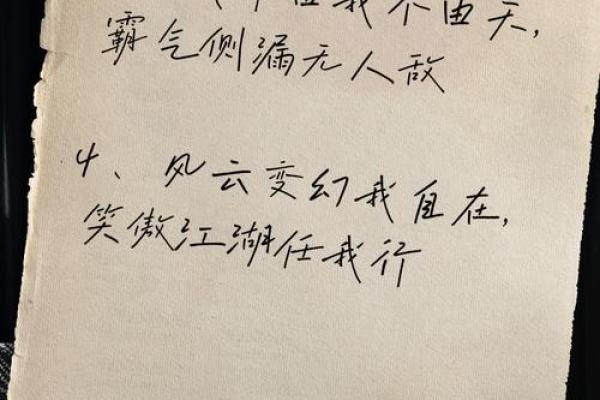 我不由天，
霸气侧漏无人敌
4、风云变幻我自在，
笑傲江湖任我行